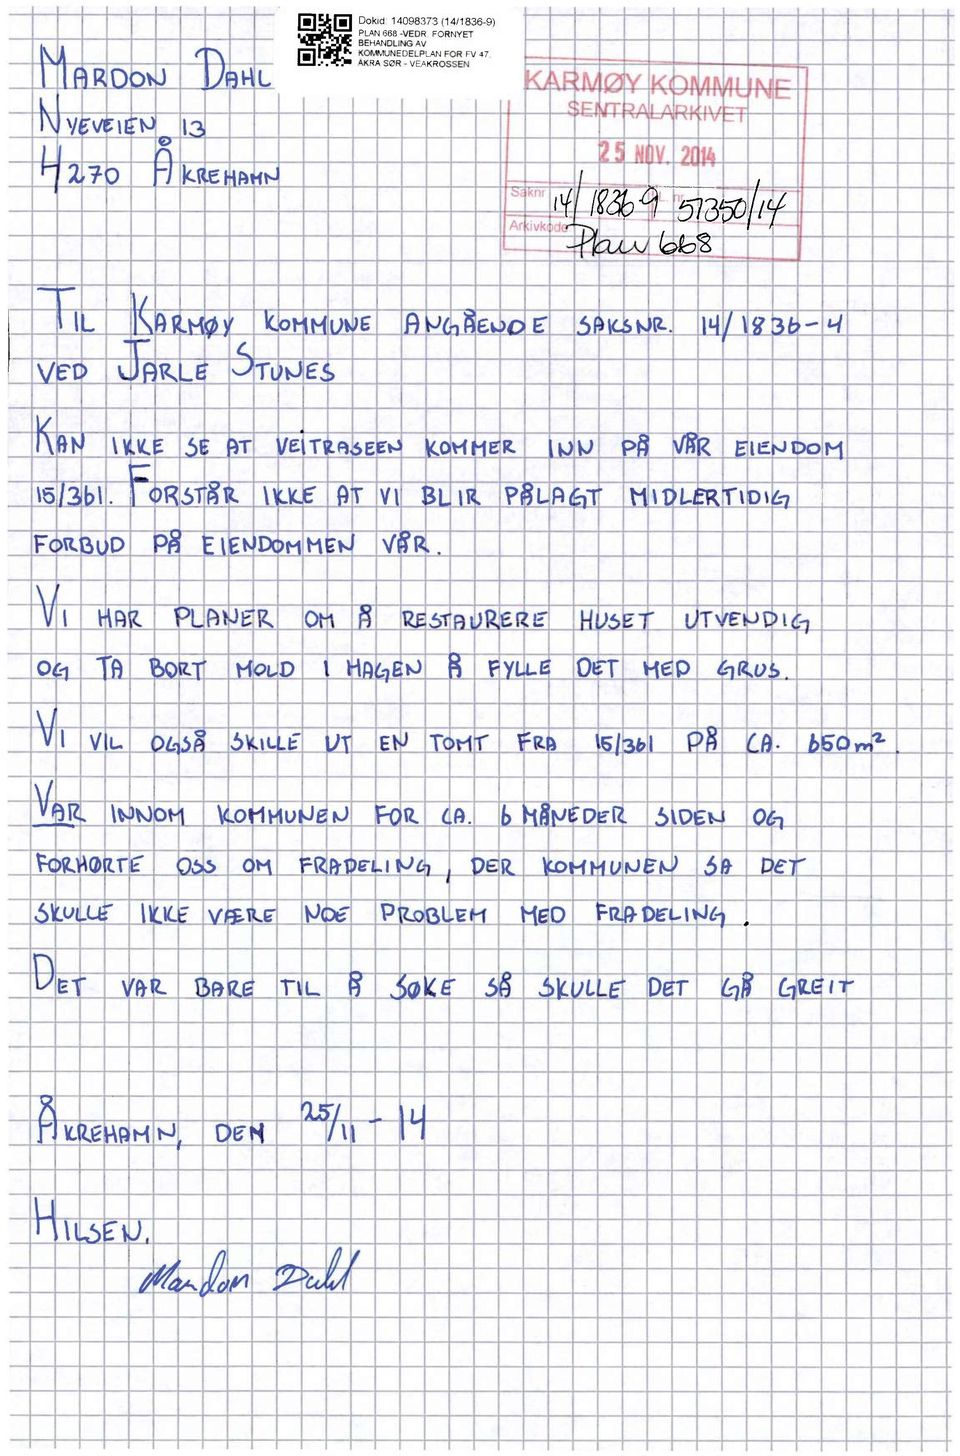 Dokid: 14098373 (14/1836-9)
PLAN 668 -VEDR. FORNYET
BEHANDLING AV
KOMMUNEDELPLAN FOR FV 47,
ÅKRA SØR - VEAKROSSEN
MARDON DAHL
NYEVEIEN 13
4270 ÅKREHAMN
KARMØY KOMMUNE
SENTRALARKIVET
25 NOV. 2014
Saknr. 14/1836-9 L. nr. 57350/14
Arkivkode Plan 668
TIL KARMØY KOMMUNE ANGÅENDE SAKSNR. 14/1836-4
VED JARLE STUNES
KAN IKKE SE AT VEITRASEEN KOMMER INN PÅ VÅR EIENDOM
15/361. FORSTÅR IKKE AT VI BLIR PÅLAGT MIDLERTIDIG
FORBUD PÅ EIENDOMMEN VÅR.
VI HAR PLANER OM Å RESTAURERE HUSET UTVENDIG
OG TA BORT MOLD I HAGEN Å FYLLE DET MED GRUS.
VI VIL OGSÅ SKILLE UT EN TOMT FRA 15/361 PÅ CA. 650m².
VAR INNOM KOMMUNEN FOR CA. 6 MÅNEDER SIDEN OG
FORHØRTE OSS OM FRADELING, DER KOMMUNEN SA DET
SKULLE IKKE VÆRE NOE PROBLEM MED FRADELING.
DET VAR BARE TIL Å SØKE SÅ SKULLE DET GÅ GREIT
ÅKREHAMN, DEN 25/11-14
HILSEN.
Mardon Dahl